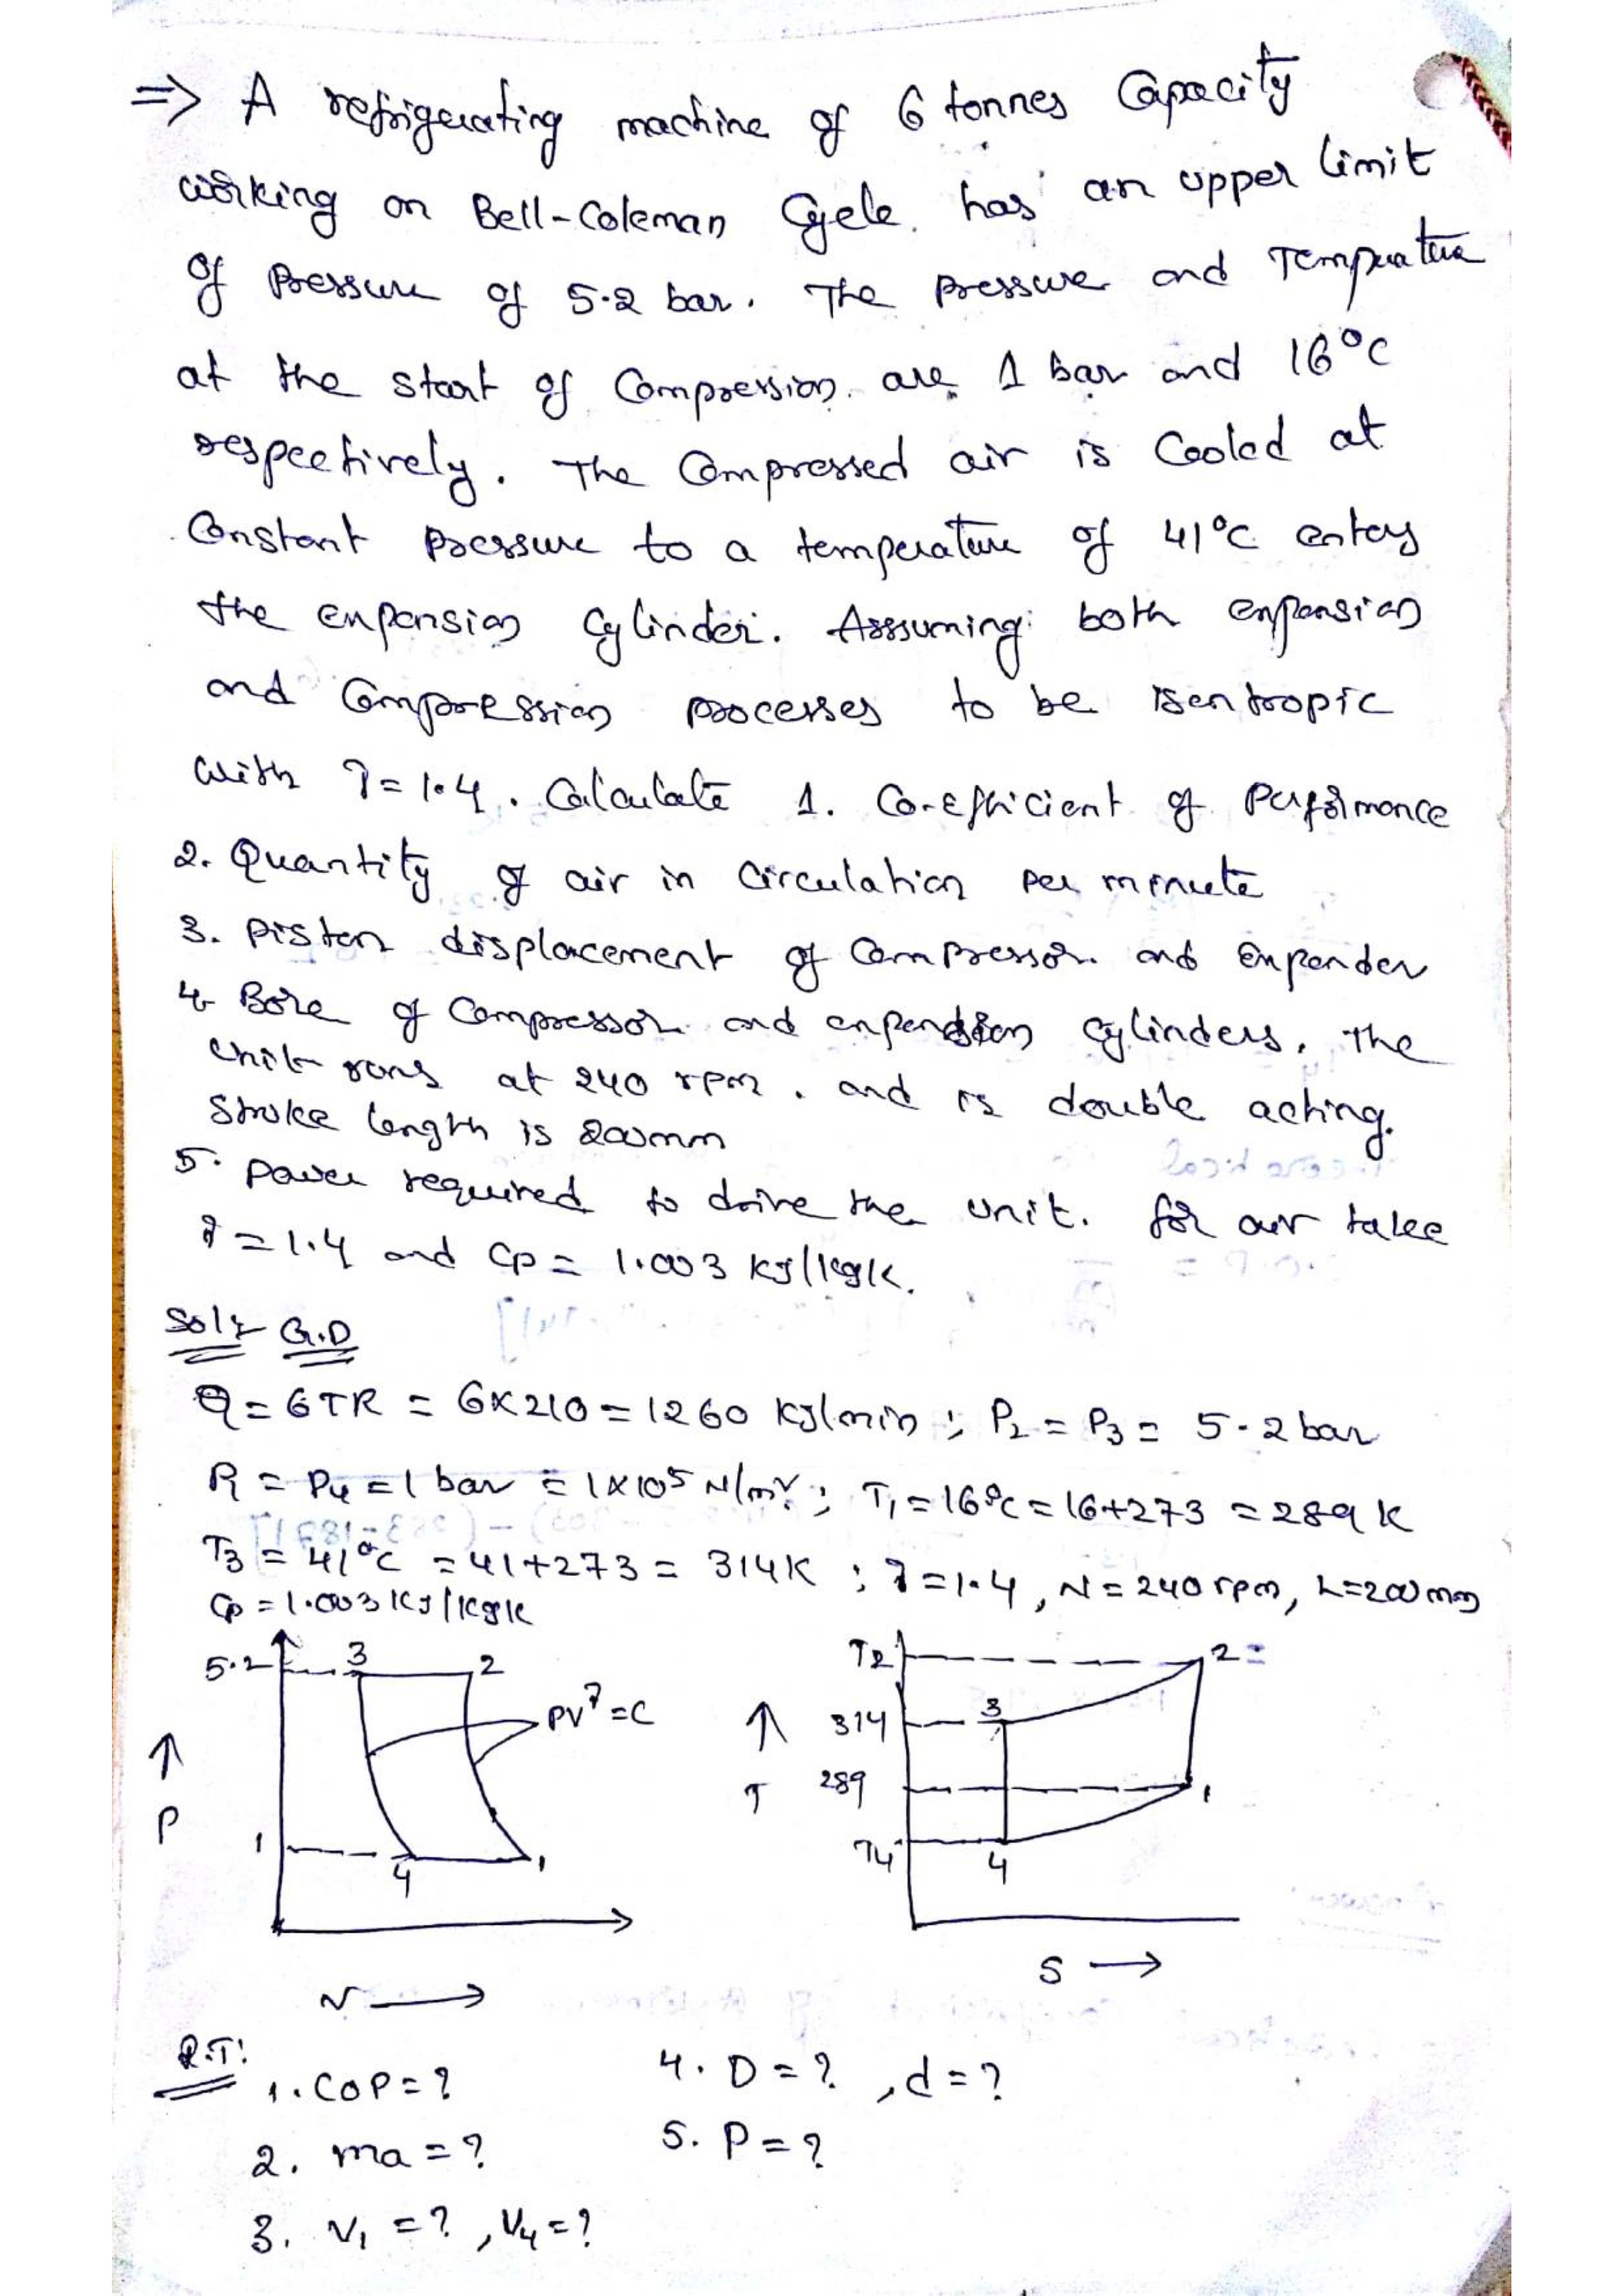 => A refrigerating machine of 6 tonnes Capacity
working on Bell-Coleman Cycle. has an upper limit
of Pressure of 5.2 bar. The pressure and Temperature
at the start of Compression. are 1 bar and 16°C
respectively. The Compressed air is Cooled at
Constant Pressure to a temperature of 41°C enters
the expansion Cylinder. Asssuming both expansion
and Compression processes to be isentropic
with γ=1.4. Calculate 1. Co-efficient of Performance
2. Quantity of air in Circulation per minute
3. Piston displacement of Compressor and Expander
4. Bore of Compressor and expansion Cylinders. The
unit runs at 240 rpm. and is double acting.
Stroke length is 200mm
5. Power required to drive the unit. for air take
γ=1.4 and Cp = 1.003 KJ/KgK.
Sol: G.D
Q = 6TR = 6x210 = 1260 KJ/min ; P2 = P3 = 5.2 bar
P1 = P4 = 1 bar = 1x10⁵ N/m² ; T1 = 16°C = 16+273 = 289 K
T3 = 41°C = 41+273 = 314K ; γ=1.4, N = 240 rpm, L=200mm
Cp = 1.003 KJ/KgK
5.2 3 2
PV^γ = C
↑
P
1
4 1
v →
T2 2
↑ 314 3
T 289 1
T4 4
S →
R.T:
1. COP = ? 4. D = ? , d = ?
2. ma = ? 5. P = ?
3. V1 = ? , V4 = ?